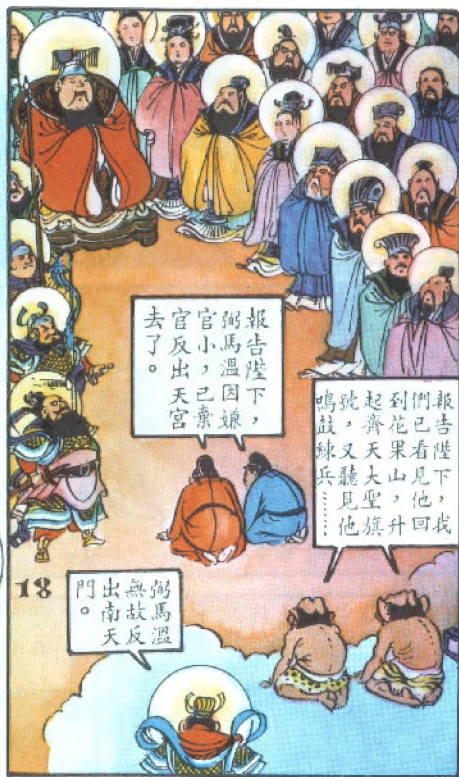 報告陛下，
弼馬溫因嫌
官小，已棄
官反出天宮
去了。
報告陛下，我
們已看見他回
到花果山，升
起齊天大聖旗
號，又聽見他
鳴鼓練兵………
弼馬溫
無故反
出南天
門。
18